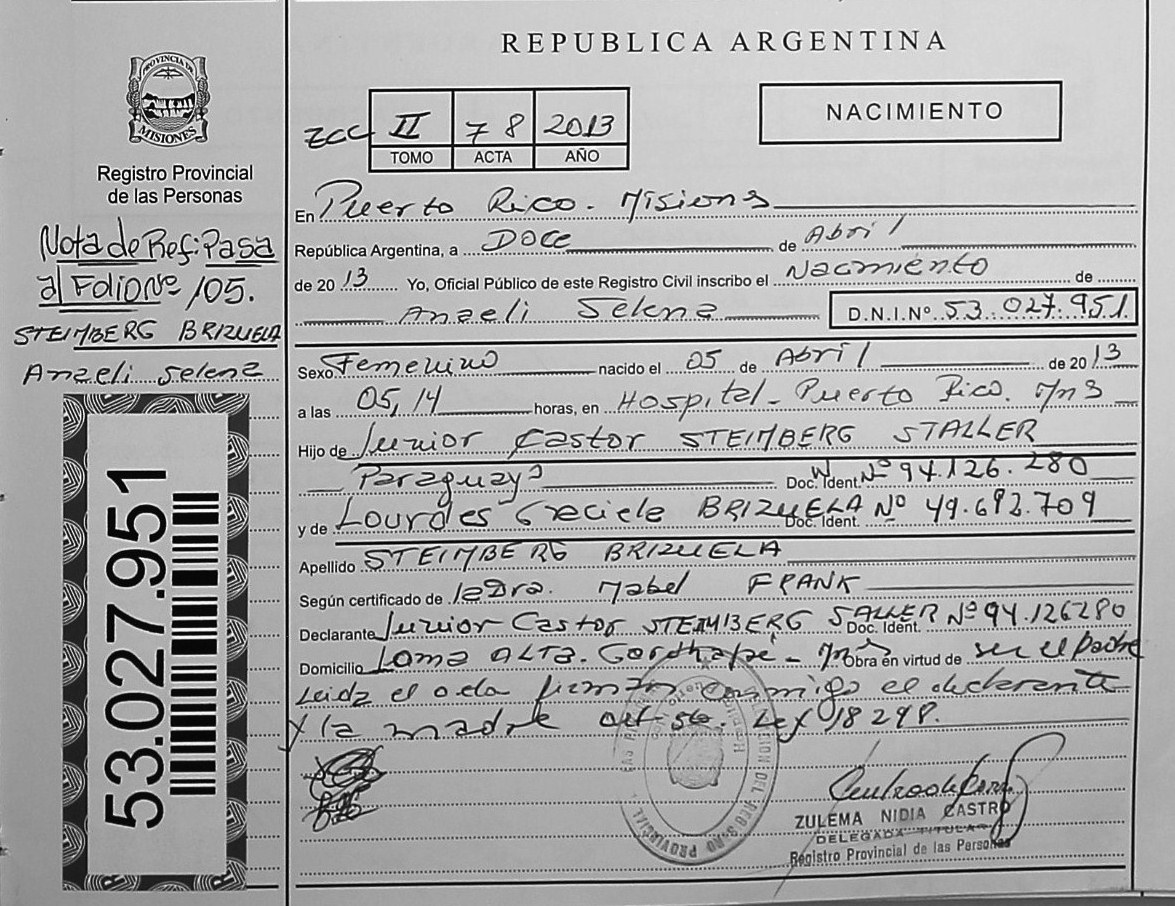 REPUBLICA ARGENTINA
PROVINCIA DE
MISIONES
Registro Provincial
de las Personas
Nota de Ref: Pasa
al Folio Nº 105.
STEIMBERG BRIZUELA
Anaeli Selena
53.027.951
II 78 2013
TOMO ACTA AÑO
NACIMIENTO
En Puerto Rico. Misiones
República Argentina, a Doce de Abril
de 2013 Yo, Oficial Público de este Registro Civil inscribo el Nacimiento de
Anaeli Selena D.N.I.Nº 53.027.951
Sexo Femenino nacido el 05 de Abril de 2013
a las 05,14 horas, en Hospital - Puerto Rico. Mns
Hijo de Junior Castor STEIMBERG STALLER
Paraguayo Doc. Ident. Nº 94.126.280
y de Lourdes Graciela BRIZUELA Doc. Ident. Nº 49.692.709
Apellido STEIMBERG BRIZUELA
Según certificado de la Dra. Mabel FRANK
Declarante Junior Castor STEIMBERG SALLER Doc. Ident. Nº 94.126280
Domicilio Loma ALTA. - Mns Obra en virtud de ser el padre
Leida el acta firman conmigo el declarante
y la madre Ley 18248.
ZULEMA NIDIA CASTRO
DELEGADA TITULAR
Registro Provincial de las Personas